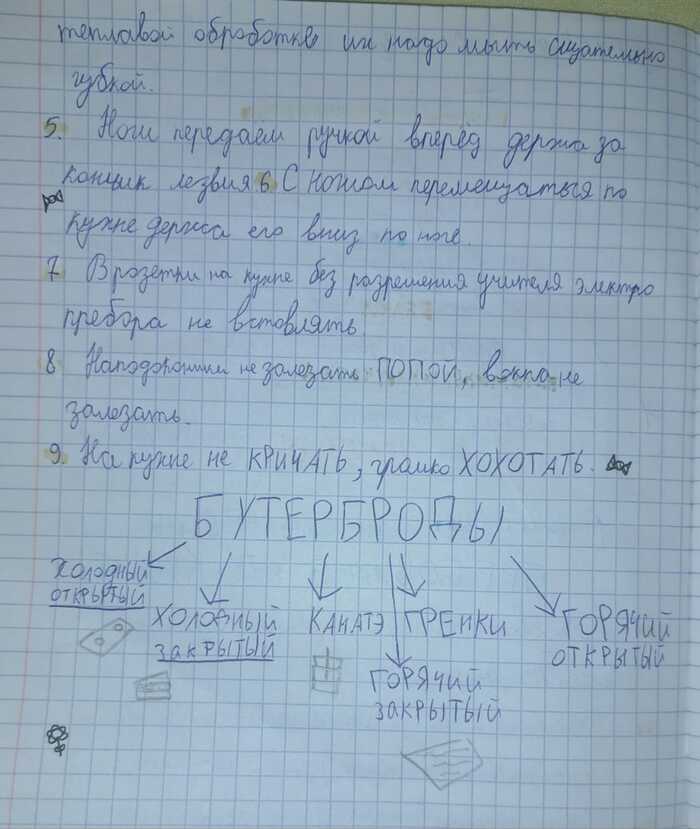 тепловой обработке их надо мыть сщательно
губкой.
5. Нож передаём ручкой вперёд держа за
кончик лезвия 6 С ножом перемещаться по
кухне держа его вниз по ноге.
7 В розетки на кухне без разрешения учителя электро
пребора не вставлять.
8 Наподоконники не залезать ПОПОЙ, вокна не
залезать.
9. На кухне не КРИЧАТЬ, грамко ХОХОТАТЬ.
БУТЕРБРОДЫ
ХОЛОДНЫЙ
ОТКРЫТЫЙ
ХОЛОДНЫЙ
ЗАКРЫТЫЙ
КАНАТЭ
ГРЕНКИ
ГОРЯЧИЙ
ЗАКРЫТЫЙ
ГОРЯЧИЙ
ОТКРЫТЫЙ